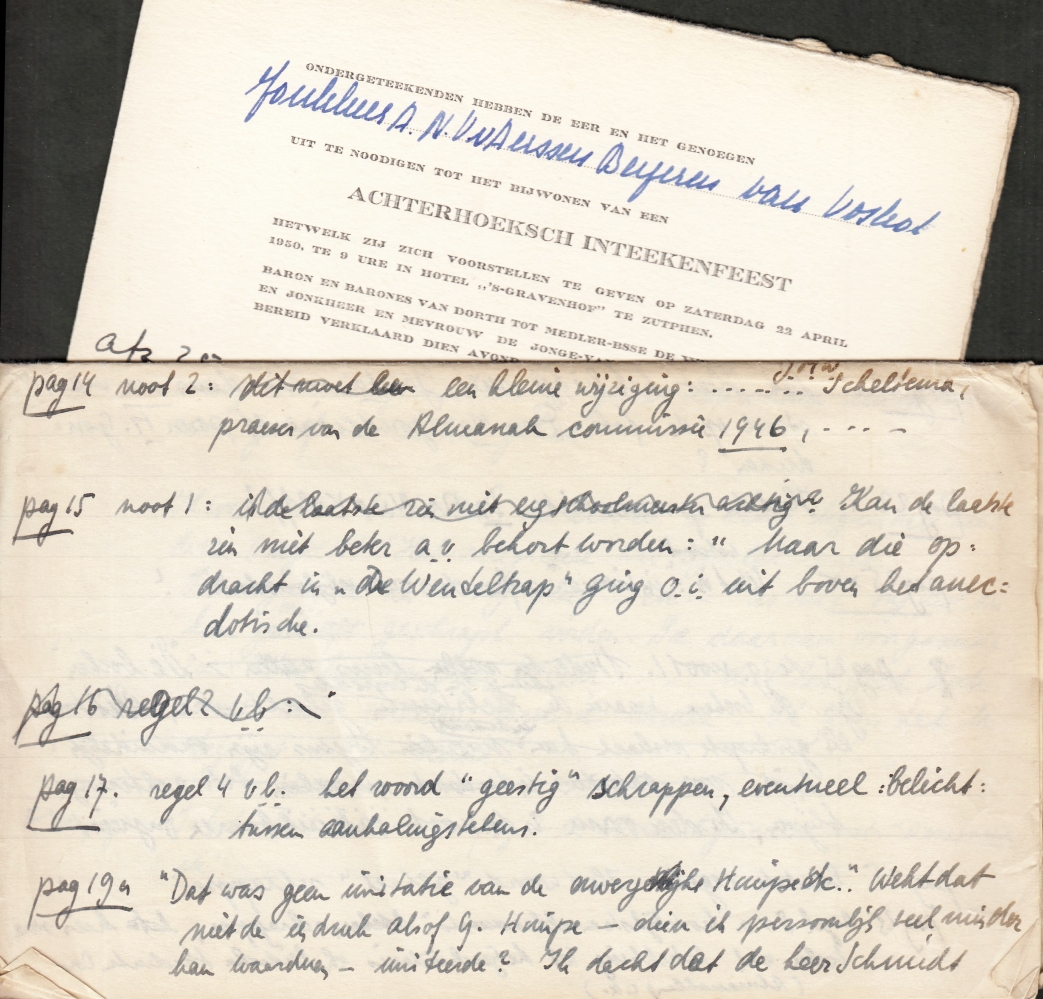 ONDERGETEEKENDEN HEBBEN DE EER EN HET GENOEGEN
Jonkheer A. N. V. v. Aerssen Beyeren van Voshol
UIT TE NOODIGEN TOT HET BIJWONEN VAN EEN
ACHTERHOEKSCH INTEEKENFEEST
HETWELK ZIJ ZICH VOORSTELLEN TE GEVEN OP ZATERDAG 22 APRIL
1950, TE 9 URE IN HOTEL „'s-GRAVENHOF" TE ZUTPHEN.
BARON EN BARONES VAN DORTH TOT MEDLER-BSSE DE
EN JONKHEER EN MEVROUW DE JONGE-
BEREID VERKLAARD DIEN AVOND
pag 14 noot 2: dit moet een kleine wijziging: ........ Scheltema,
praeses van de Almanak commissie 1946, - - - -
pag 15 noot 1: is de laatste zin niet erg schoolmeesterachtig? Kan de laatste
zin niet beter a.v. bekort worden: " Maar die op=
dracht in „De Wenteltrap" ging o.i. uit boven het anec=
dotische.
pag 16 regel 2 v.b.:
pag 17. regel 4 v.b. het woord "geestig" schrappen, eventueel :belicht:
tussen aanhalingstekens.
pag 19a "Dat was geen imitatie van de onvergetelijke Hampe etc.". Wekt dat
niet de indruk alsof G. Hampe – dien ik persoonlijk veel minder
kan waarderen – imiteerde? Ik dacht dat de heer Schmidt